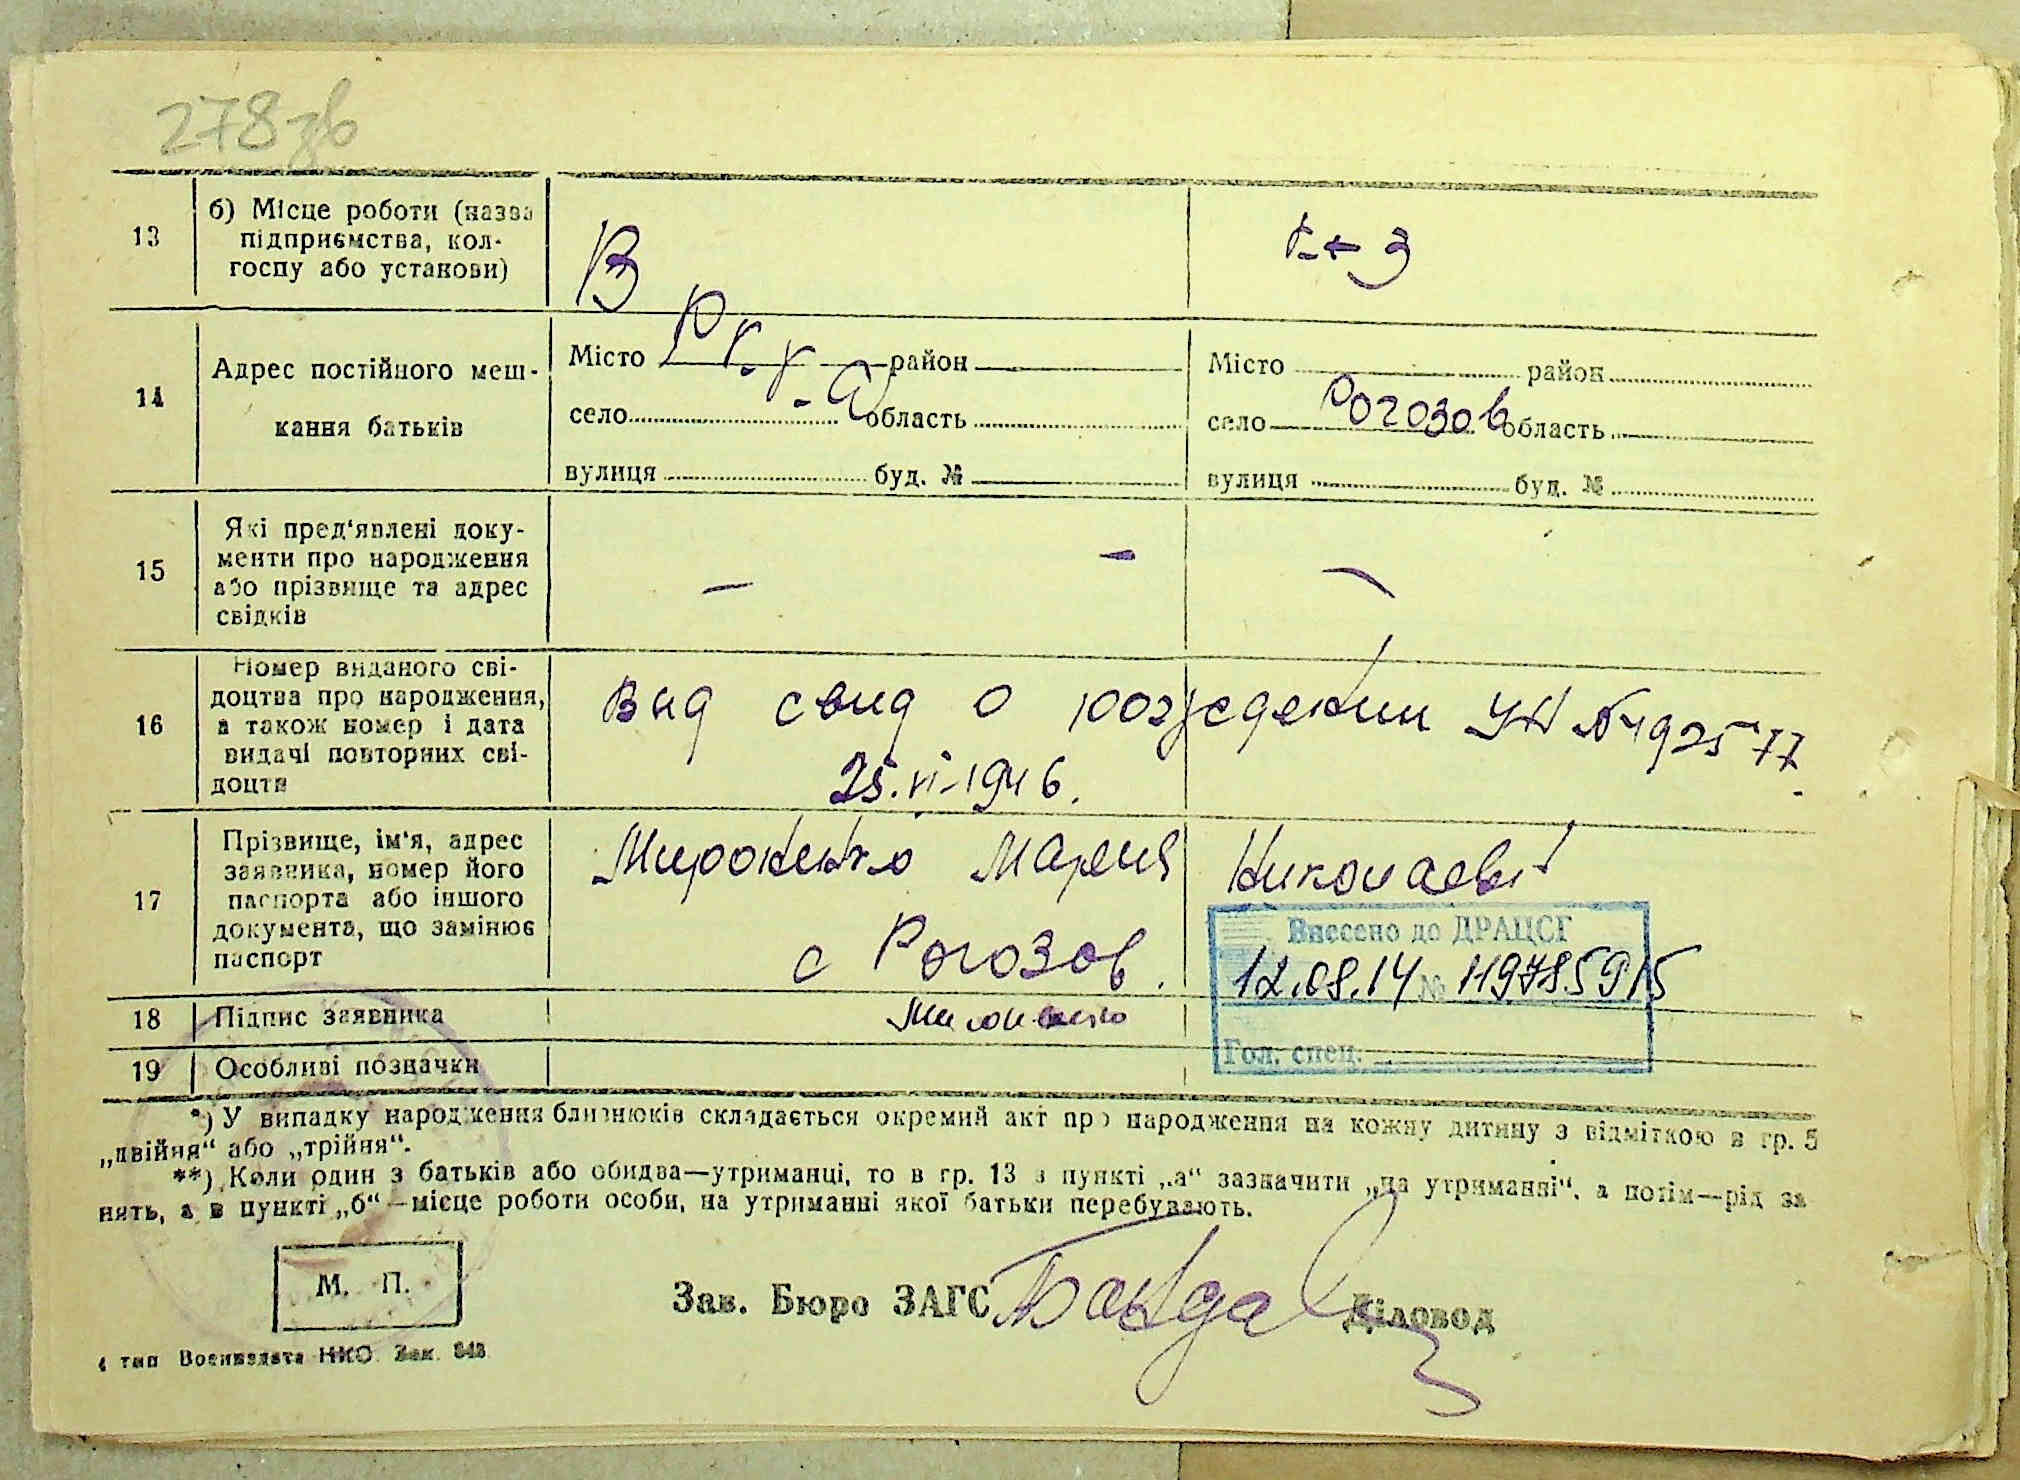 278зв
13
б) Місце роботи (назва
підприємства, кол-
госпу або установи)
В
к-з
Р.К.К.А
14
Адрес постійного меш-
кання батьків
Місто район
село область
вулиця буд. №
Місто район
село Рогозов область
вулиця буд. №
15
Які пред'явлені доку-
менти про народження
або прізвище та адрес
свідків
— — —
16
Номер виданого сві-
доцтва про народження,
а також номер і дата
видачі повторних сві-
доцтв
Выд свид о
25.VI-1946.
17
Прізвище, ім'я, адрес
заявника, номер його
паспорта або іншого
документа, що замінює
паспорт
Мироненко Мария
с Рогозов.
Внесено до ДРАЦСГ
12.08.14 № 11978595
Гол. спец.
18
Підпис заявника
Мироненко
19
Особливі позначки
*) У випадку народження близнюків складається окремий акт про народження на кожну дитину з відміткою в гр. 5
„двійня“ або „трійня“.
**) Коли один з батьків або обидва—утриманці, то в гр. 13 в пункті „а“ зазначити „на утриманні“, а потім—рід за
нять, а в пункті „б“—місце роботи особи, на утриманні якої батьки перебувають.
М. П.
Зав. Бюро ЗАГС
Діловод
4 тип Воениздата НКО Зак. 848